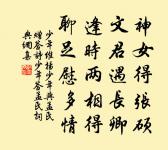 神女得張碩
文君遇長卿
逢時兩相得
聊足慰多情
少年維揚少年與孟氏
贈答詩少年答孟氏詞
典網